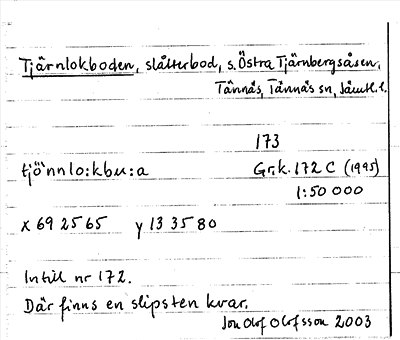 Tjärnlokboden, slåtterbod, s. Östra Tjärnbergsåsen,
Tännäs, Tännäs sn, Jämtl. l.
173
tjönnlo:kbu:a Gr.k. 172 C (1995)
1:50 000
x 69 25 65 y 13 35 80
Intill nr 172.
Där finns en slipsten kvar.
Jon Olof Olofsson 2003